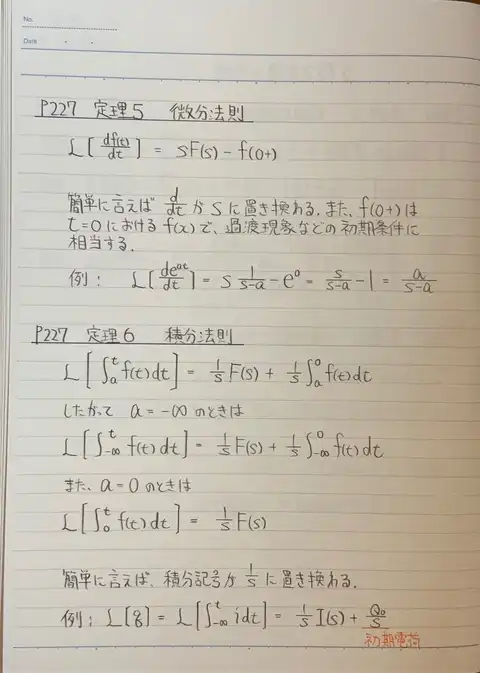 No.
Date
P227 定理5 微分法則
L[df(t)/dt] = sF(s) - f(0+)
簡単に言えば d/dt が s に置き換わる。また、f(0+)は
t=0 における f(x)で、過渡現象などの初期条件に
相当する。
例: L[de^{at}/dt] = s 1/(s-a) - e^0 = s/(s-a) - 1 = a/(s-a)
P227 定理6 積分法則
L[∫_a^t f(t)dt] = 1/s F(s) + 1/s ∫_a^0 f(t)dt
したがって a = -∞ のときは
L[∫_{-∞}^t f(t)dt] = 1/s F(s) + 1/s ∫_{-∞}^0 f(t)dt
また、a = 0 のときは
L[∫_0^t f(t)dt] = 1/s F(s)
簡単に言えば、積分記号が 1/s に置き換わる。
例: L[q] = L[∫_{-∞}^t idt] = 1/s I(s) + Q0/s
初期電荷